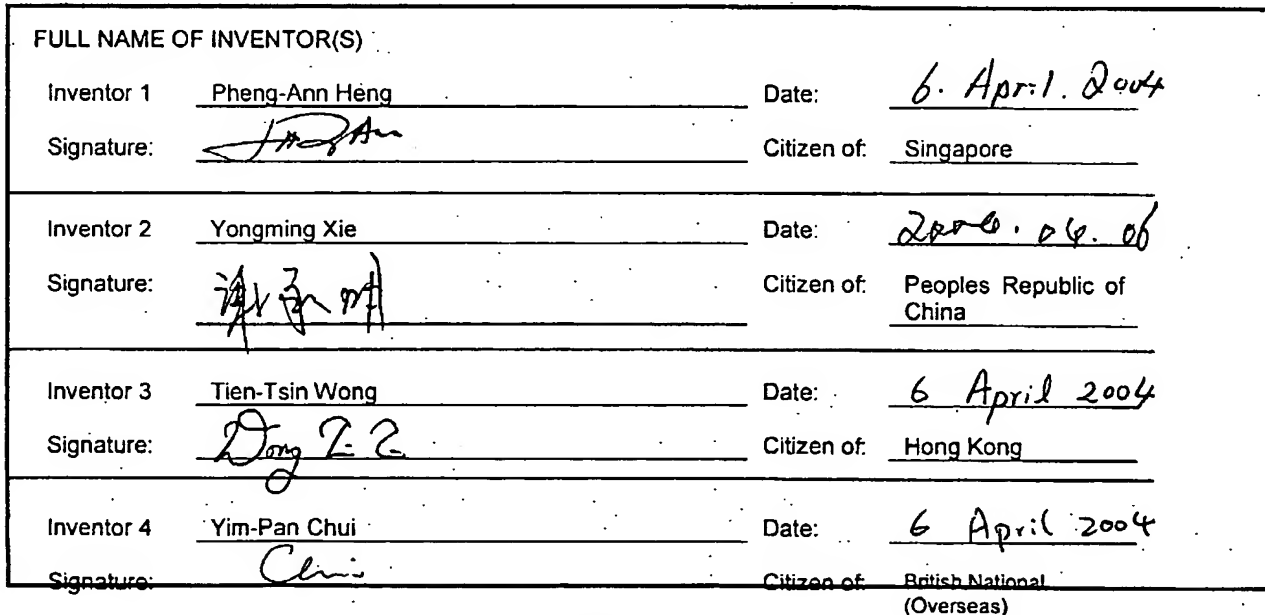 FULL NAME OF INVENTOR(S)
Inventor 1 Pheng-Ann Heng Date: 6. April. 2004
Signature: Citizen of: Singapore
Inventor 2 Yongming Xie Date: 2004.04.06
Signature: 谢永明 Citizen of: Peoples Republic of
China
Inventor 3 Tien-Tsin Wong Date: 6 April 2004
Signature: Wong T T Citizen of: Hong Kong
Inventor 4 Yim-Pan Chui Date: 6 April 2004
Signature: Chui Citizen of: British National
(Overseas)